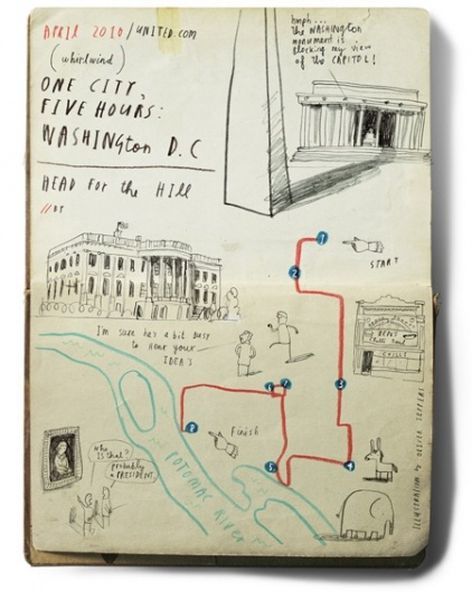 APRIL 2010 / UNITED.COM
(whirlwind)
ONE CITY,
FIVE HOURS:
WASHINGTON D.C
HEAD FOR the HILL
// BY
hmph...
the WASHINGTON
monument is
blocking my view
of the CAPITOL!
1
START
2
I'm sure he's a bit busy
to hear your
IDEA'S
3
CHILI
6
7
8
Finish
5
4
POTOMAC RIVER
who
IS that?
probably
a PRESIDENT
ILLUSTRATION by OLIVER JEFFERS